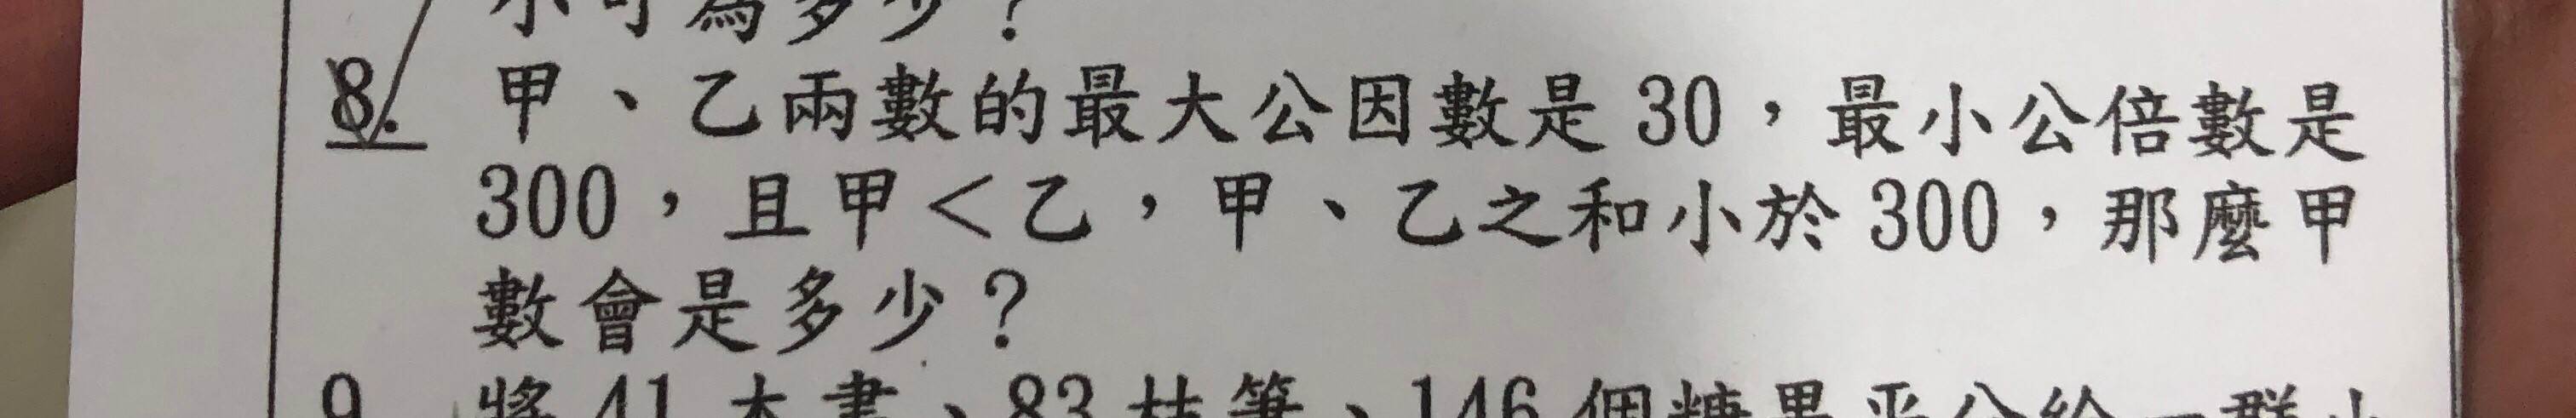 小可為多少？
8. 甲、乙兩數的最大公因數是30，最小公倍數是
300，且甲＜乙，甲、乙之和小於300，那麼甲
數會是多少？
9. 將41本書、83枝筆、146個糖果平分給一群小